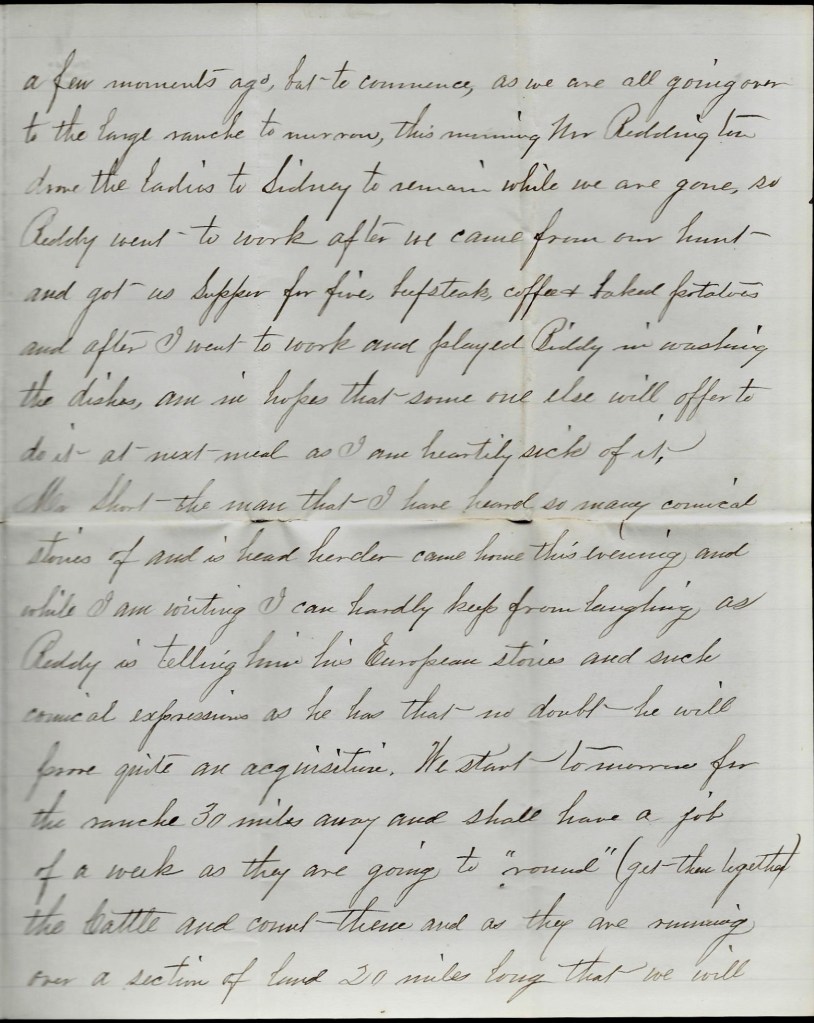 a few moments ago, but to commence, as we are all going over
to the large ranche to morrow, this morning Mr Reddington
drove the Ladies to Sidney to remain while we are gone, so
Reddy went to work after we came from our hunt
and got us Supper for five, beefsteak, coffee & baked potatoes
and after I went to work and played Biddy in washing
the dishes, am in hopes that some one else will offer to
do it at next meal as I am heartily sick of it,
Mr Short the man that I have heard so many comical
stories of and is head herder came home this evening, and
while I am writing I can hardly keep from laughing, as
Reddy is telling him his European stories and such
comical expressions as he has that no doubt he will
prove quite an acquisition. We start tomorrow for
the ranche 30 miles away and shall have a job
of a week as they are going to "round" (get them together)
the Cattle and count them and as they are running
over a section of land 20 miles long that we will